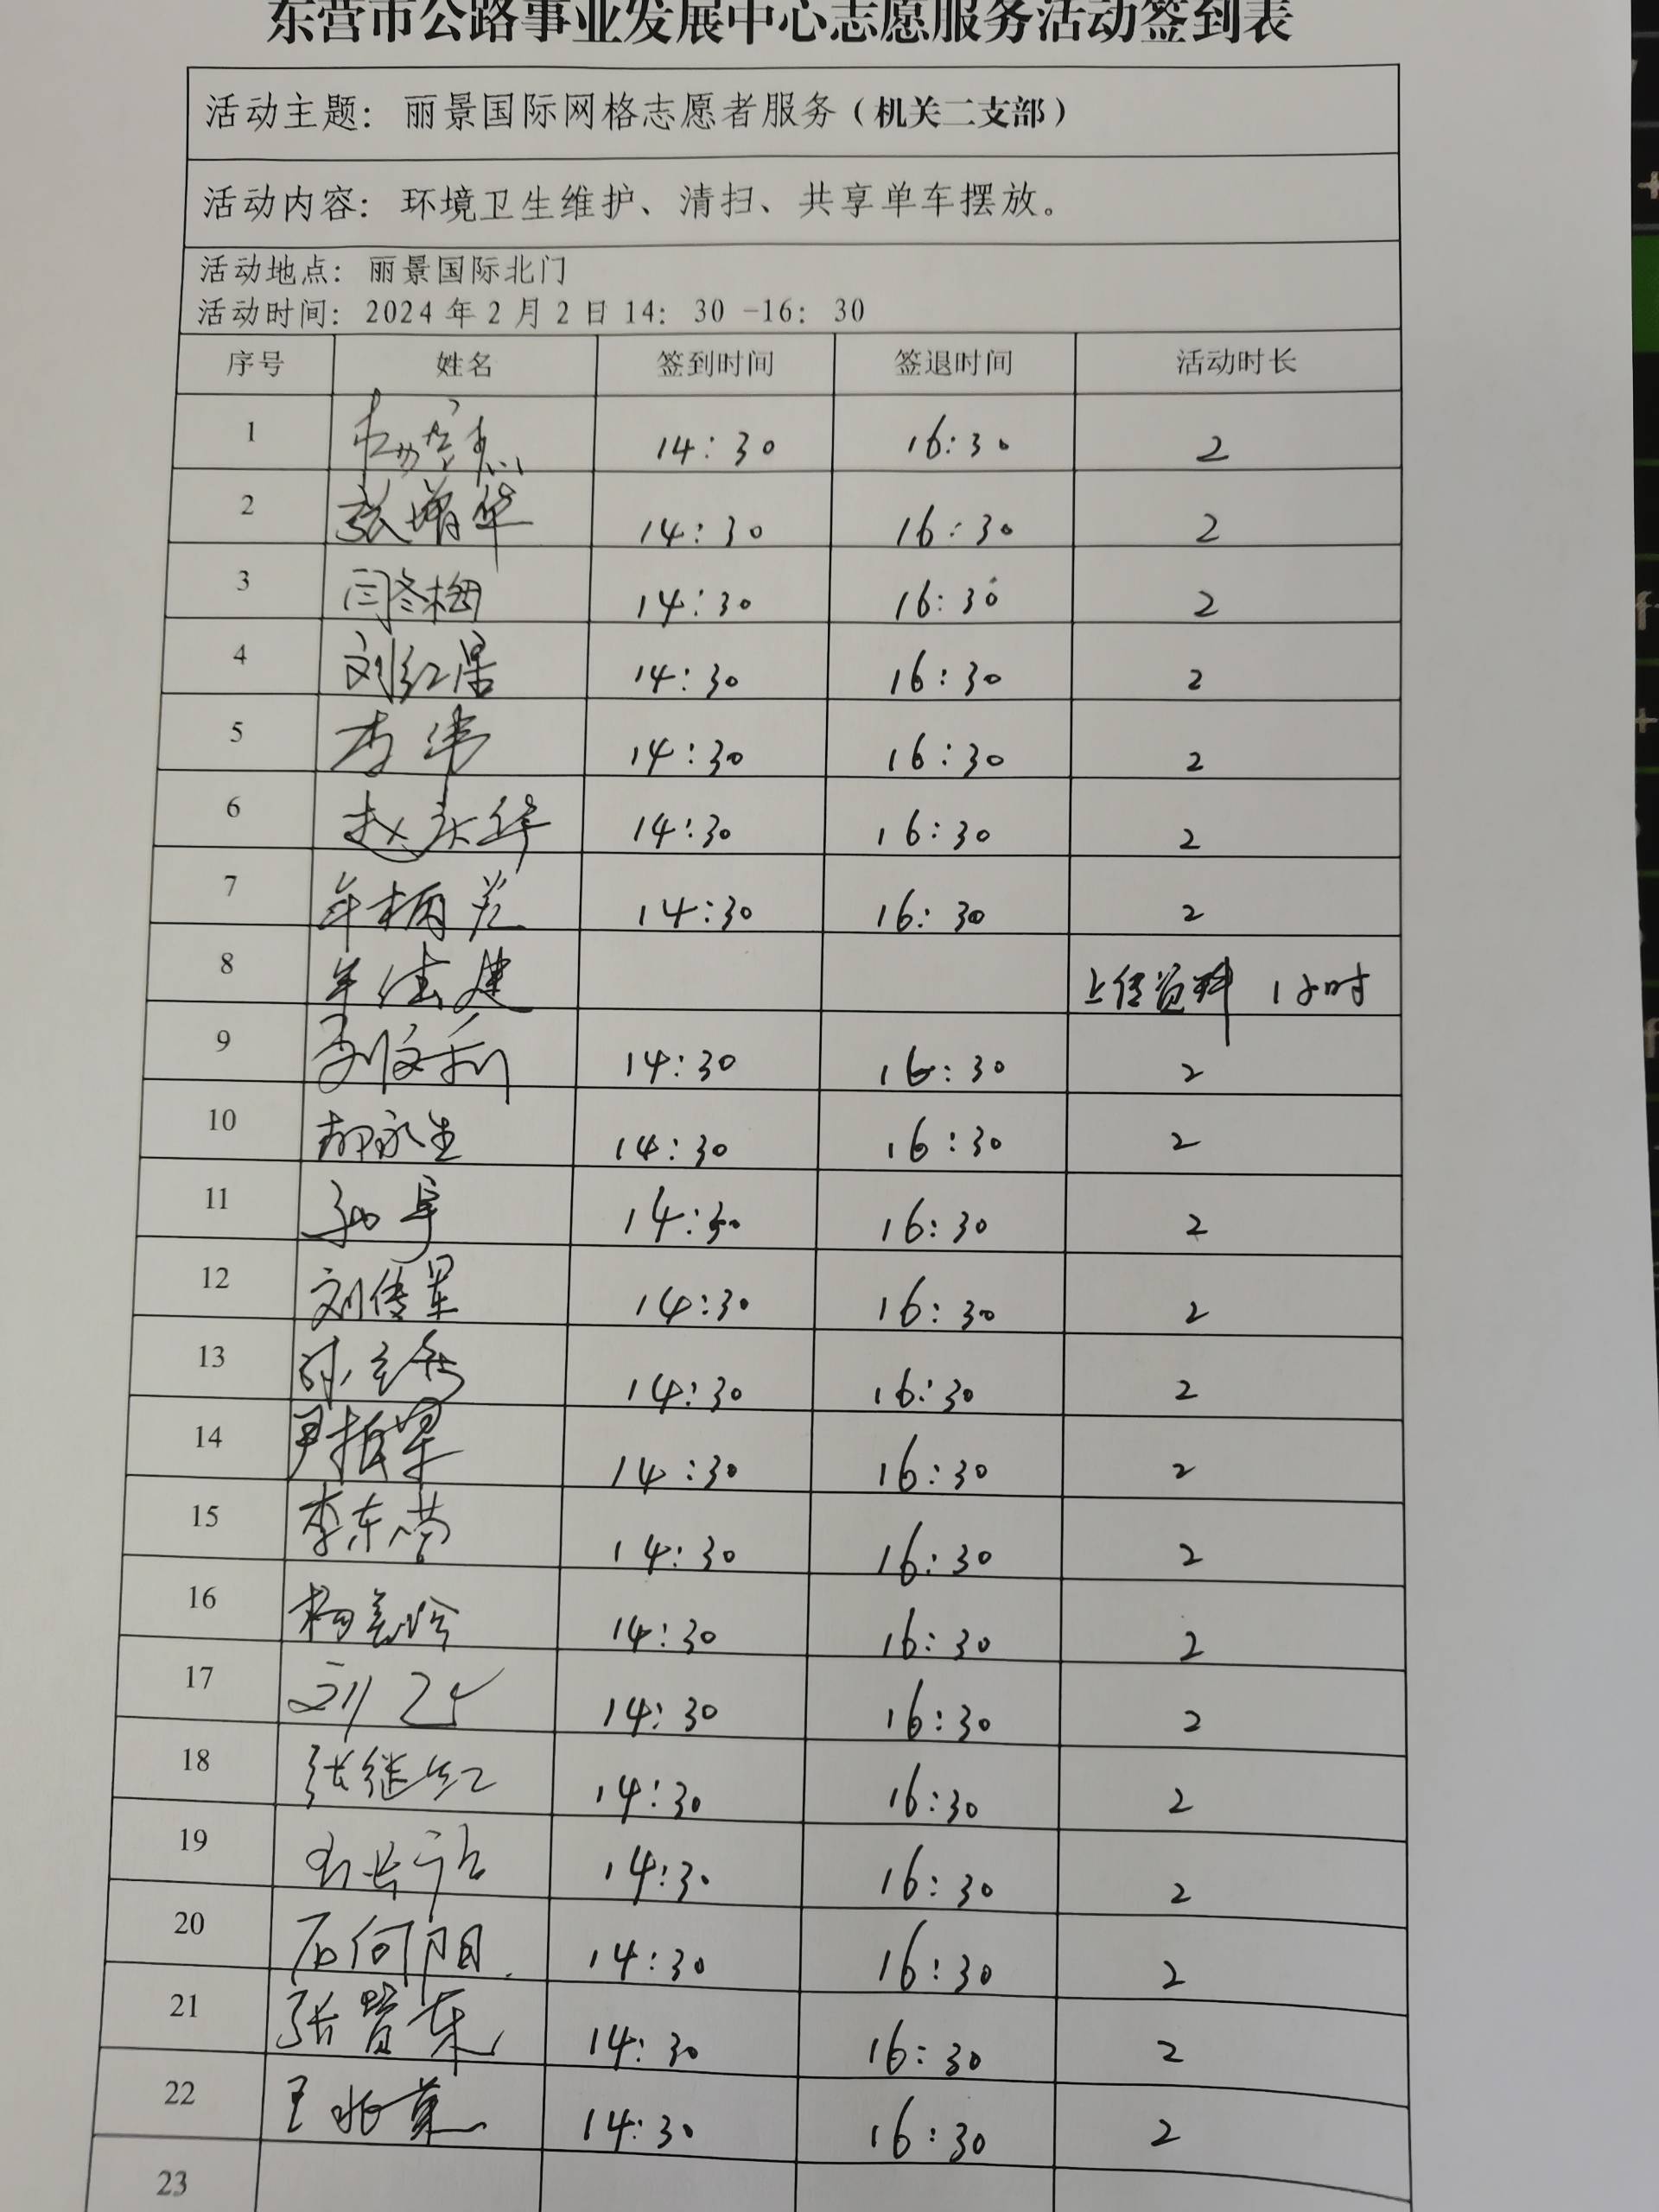 东营市公路事业发展中心志愿服务活动签到表
活动主题：丽景国际网格志愿者服务（机关二支部）
活动内容：环境卫生维护、清扫、共享单车摆放。
活动地点：丽景国际北门
活动时间：2024年2月2日14：30-16：30
序号 姓名 签到时间 签退时间 活动时长
1 14:30 16:30 2
2 张增华 14:30 16:30 2
3 闫冬梅 14:30 16:30 2
4 刘红 14:30 16:30 2
5 李伟 14:30 16:30 2
6 赵庆华 14:30 16:30 2
7 14:30 16:30 2
8 上传资料 1小时
9 14:30 16:30 2
10 郝永生 14:30 16:30 2
11 14:30 16:30 2
12 刘传军 14:30 16:30 2
13 14:30 16:30 2
14 尹振军 14:30 16:30 2
15 李东营 14:30 16:30 2
16 杨 14:30 16:30 2
17 刘 14:30 16:30 2
18 张继红 14:30 16:30 2
19 14:30 16:30 2
20 石向阳 14:30 16:30 2
21 张贤东 14:30 16:30 2
22 王 14:30 16:30 2
23